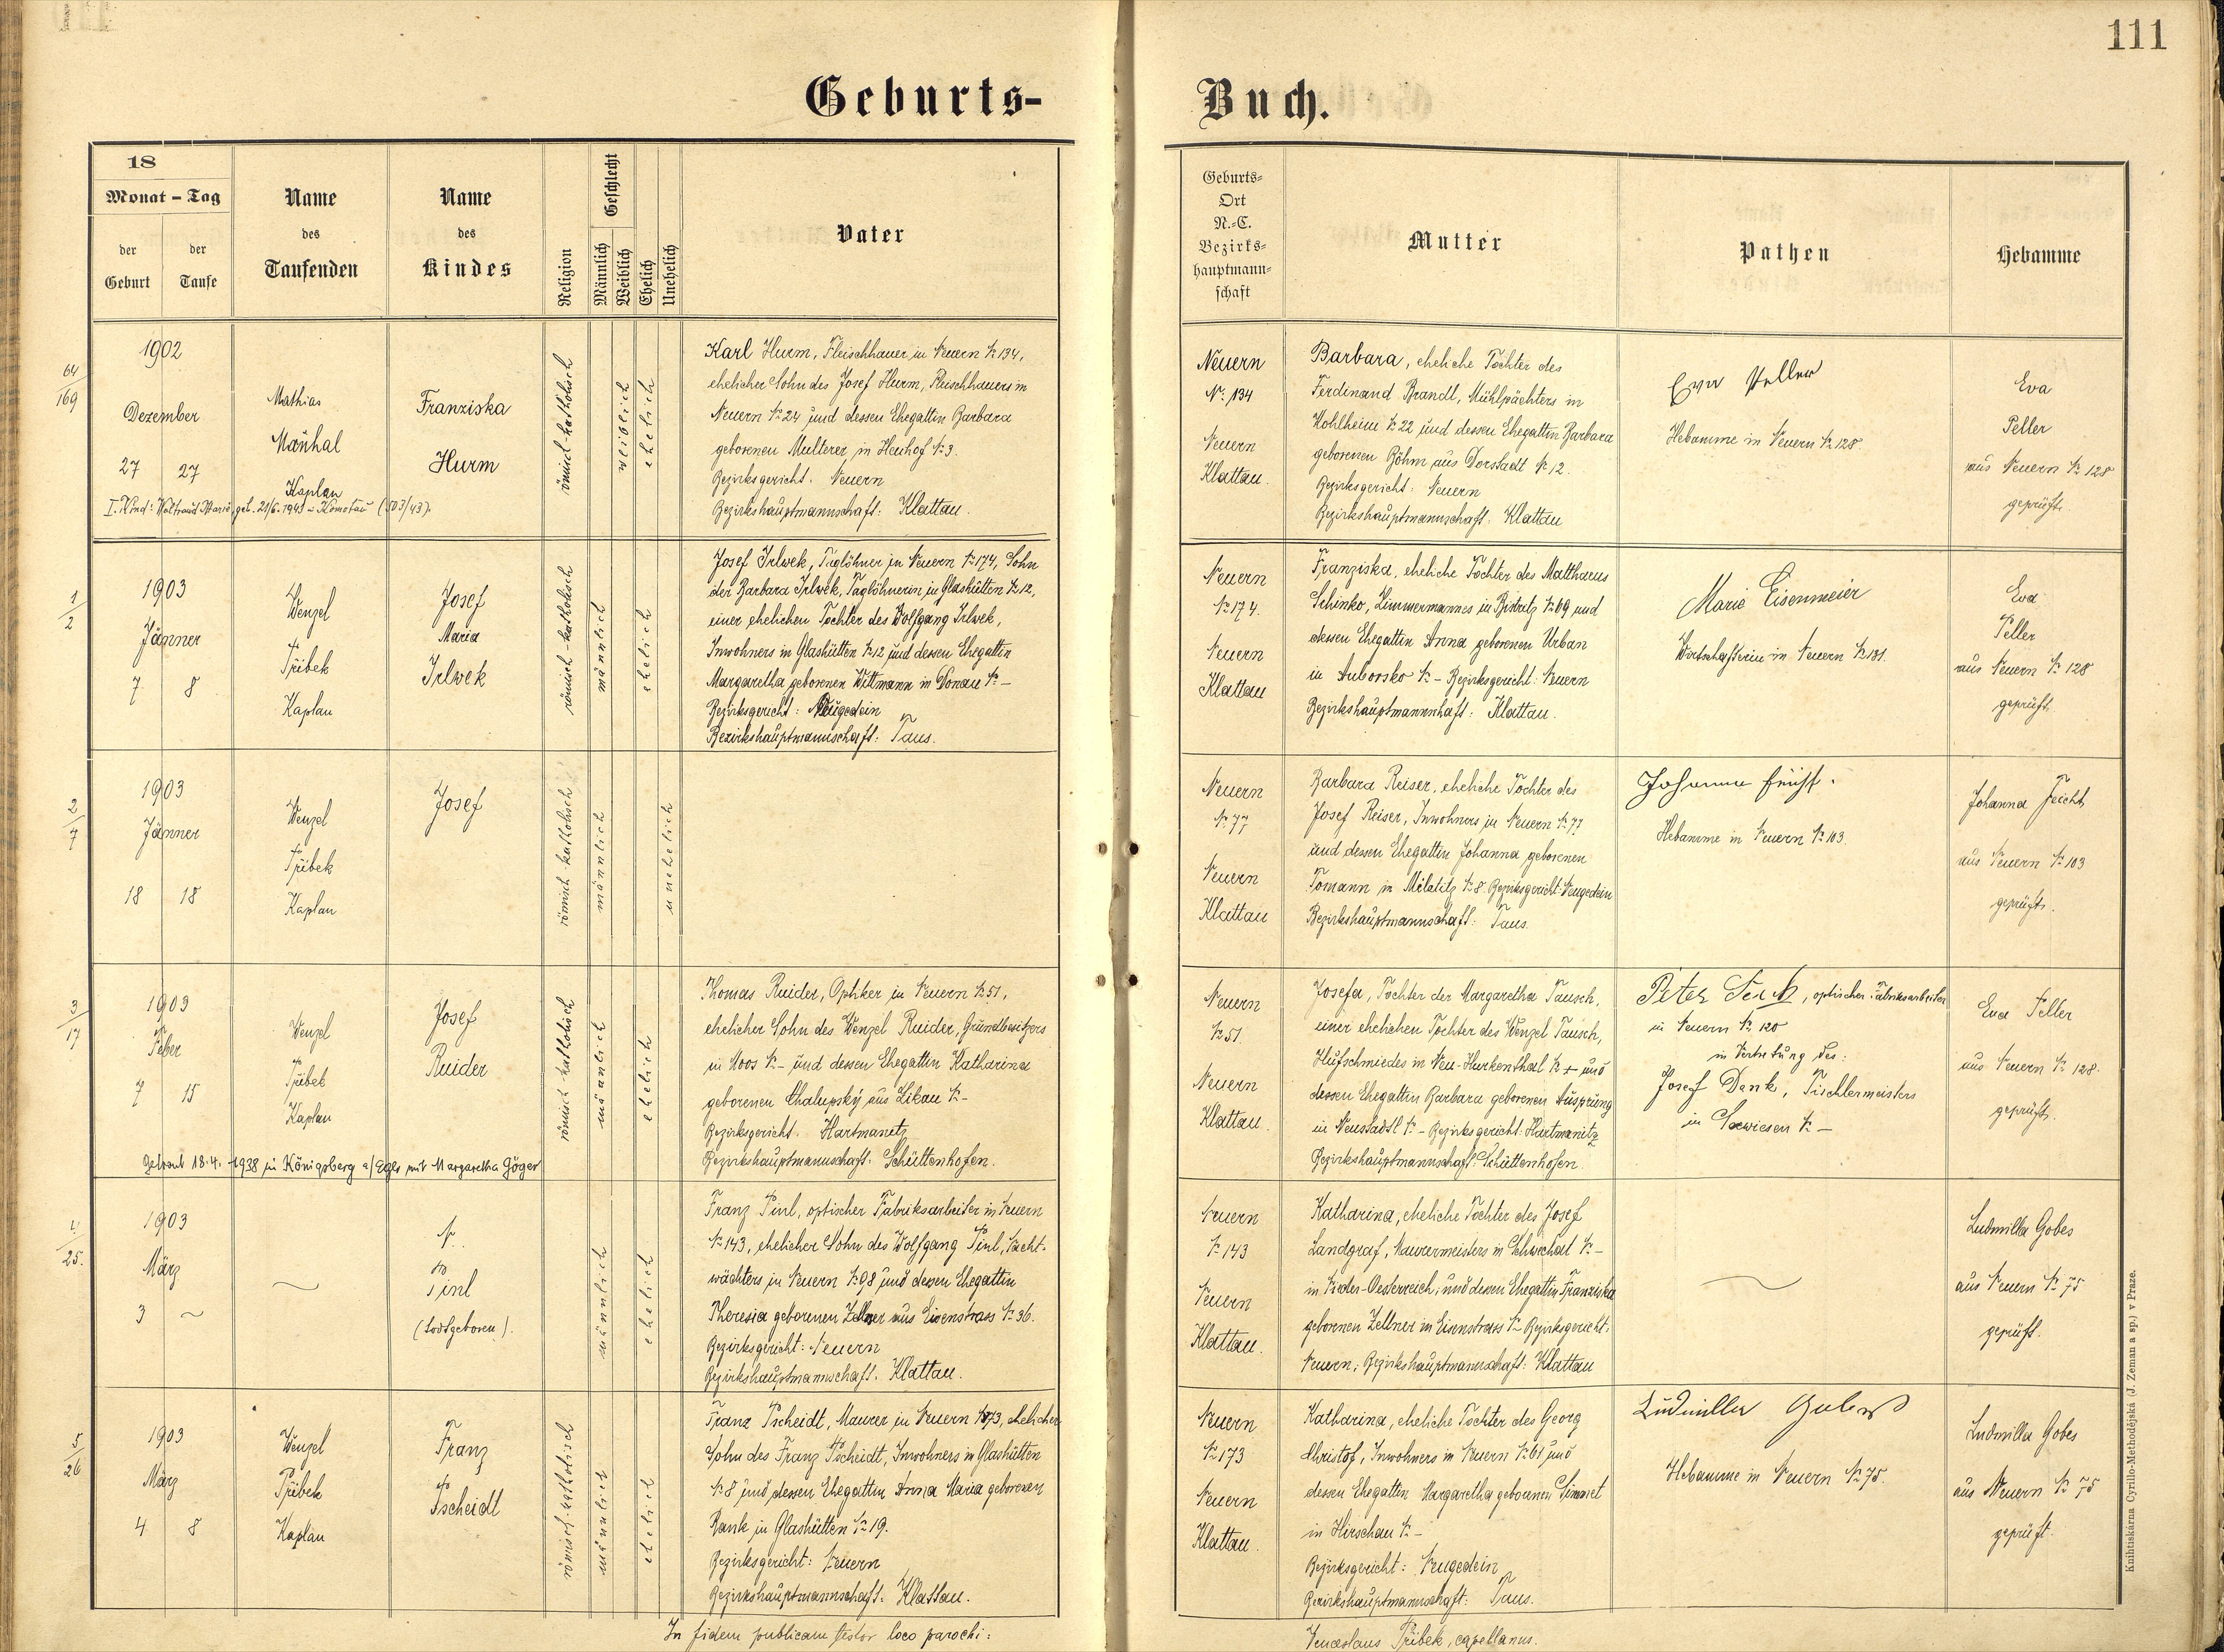 111
Geburts-
Buch.
18
Monat - Tag
der Geburt
der Taufe
Name des Taufenden
Name des Kindes
Religion
Geschlecht
Männlich
Weiblich
Ehelich
Unehelich
Vater
Geburts-
Ort
N.-C.
Bezirks-
hauptmann-
schaft
Mutter
Pathen
Hebamme
64/169
1902
Dezember
27 27
Mathias
Kaplan
Franziska
Hurm
römisch-katholisch
weiblich
ehelich
Karl Hurm, Fleischhauer in Neuern № 134,
ehelicher Sohn des Josef Hurm, Fleischhauers in
Neuern № 24 und dessen Ehegattin Barbara
geborenen Multerer in Heuhof № 3.
Bezirksgericht. Neuern
Bezirkshauptmannschaft: Klattau.
Neuern
№ 134
Neuern
Klattau.
Barbara, eheliche Tochter des
Ferdinand Brandl, Mühlpächters in
Kohlheim № 22 und dessen Ehegattin Barbara
geborenen Böhm aus Dorstadt № 12.
Bezirksgericht: Neuern
Bezirkshauptmannschaft: Klattau
Eva Peller
Hebamme in Neuern № 128
Eva
Peller
aus Neuern № 128
geprüft.
I. Kind: Waltraud Maria, geb. 21/6. 1943 - Komotau (503/43).
1/2
1903
Jänner
7. 8
Wenzel
Přibek
Kaplan
Josef
Maria
Irlwek
römisch-katholisch
männlich
ehelich
Josef Irlwek, Taglöhner in Neuern № 174, Sohn
der Barbara Irlwek, Taglöhnerin in Glashütten № 12,
einer ehelichen Tochter des Wolfgang Irlwek,
Inwohners in Glashütten № 12 und dessen Ehegattin
Margaretha geborenen Wittmann in Donau № -
Bezirksgericht: Neugedein
Bezirkshauptmannschaft: Taus.
Neuern
№ 174.
Neuern
Klattau
Franziska, eheliche Tochter des Matthaeus
Schinko, Zimmermannes in Bistritz № 69 und
dessen Ehegattin Anna geborenen Urban
in Auborsko № - Bezirksgericht: Neuern
Bezirkshauptmannschaft: Klattau.
Marie Eisenmeier
Wirtschafterin in Neuern № 131.
Eva
Peller
aus Neuern № 128
geprüft.
2/7
1903
Jänner
18 18
Wenzel
Přibek
Kaplan
Josef
römisch-katholisch
männlich
unehelich
Neuern
№ 77
Neuern
Klattau
Barbara Reiser, eheliche Tochter des
Josef Reiser, Inwohners in Neuern № 77
und dessen Ehegattin Johanna geborenen
Tomann in Milatitz № 8. Bezirksgericht: Neugedein
Bezirkshauptmannschaft: Taus.
Johanna
Hebamme in Neuern № 103.
Johanna Feicht
aus Neuern № 103
geprüft.
3/17
1903
Feber
7 15
Wenzel
Přibek
Kaplan
Josef
Ruider
römisch-katholisch
männlich
ehelich
Thomas Ruider, Optiker in Neuern № 51,
ehelicher Sohn des Wenzel Ruider, Grundbesitzers
in Moos № - und dessen Ehegattin Katharina
geborenen Chalupský aus Zikau № -
Bezirksgericht. Hartmanitz
Bezirkshauptmannschaft. Schüttenhofen.
Neuern
№ 51.
Neuern
Klattau.
Josefa, Tochter der Margaretha Tausch,
einer ehelichen Tochter des Wenzel Tausch,
Hufschmiedes in Neu-Hurkenthal № - und
dessen Ehegattin Barbara geborenen Ausprung
in Neustadtl № - Bezirksgericht: Hartmanitz
Bezirkshauptmannschaft: Schüttenhofen
Peter, optischer Fabriksarbeiter
in Neuern № 120
in Vertretung des:
Josef Denk, Tischlermeisters
in Seewiesen № -
Eva Peller
aus Neuern № 128.
geprüft.
Getraut 18.4.-1938 in Königsberg a/Eger mit Margaretha Göger
4/25.
1903
März
3 ~
N.
Pinl
(todtgeboren).
männlich
ehelich
Franz Pinl, optischer Fabriksarbeiter in Neuern
№ 143, ehelicher Sohn des Wolfgang Pinl, Nacht-
wächters in Neuern № 98 und dessen Ehegattin
Theresia geborenen Zellner aus Eisenstrass № 36.
Bezirksgericht: Neuern
Bezirkshauptmannschaft. Klattau.
Neuern
№ 143
Neuern
Klattau.
Katharina, eheliche Tochter des Josef
Landgraf, Maurermeisters in Schwechat № -
in Nieder-Oesterreich, und dessen Ehegattin Franziska
geborenen Zellner in Eisenstrass № - Bezirksgericht:
Neuern, Bezirkshauptmannschaft: Klattau
Ludmilla Gobes
aus Neuern № 75
geprüft.
5/26
1903
März
4 8
Wenzel
Přibek
Kaplan
Franz
Pscheidt
römisch-katholisch
männlich
ehelich
Franz Pscheidt, Maurer in Neuern № 173, ehelicher
Sohn des Franz Pscheidt, Inwohners in Glashütten
№ 8 und dessen Ehegattin Anna Maria geborenen
Rank in Glashütten № 19.
Bezirksgericht: Neuern
Bezirkshauptmannschaft: Klattau.
Neuern
№ 173
Neuern
Klattau.
Katharina, eheliche Tochter des Georg
Christof, Inwohners in Neuern № 61 und
dessen Ehegattin Margaretha geborenen Simmet
in Hirschau № -
Bezirksgericht: Neugedein
Bezirkshauptmannschaft: Taus.
Ludmilla Gobes
Hebamme in Neuern № 75.
Ludmilla Gobes
aus Neuern № 75
geprüft.
In fidem publicam testor loco parochi:
Venceslaus Přibek, capellanus.
Knihtiskárna Cyrillo-Methodějská (J. Zeman a sp.) v Praze.